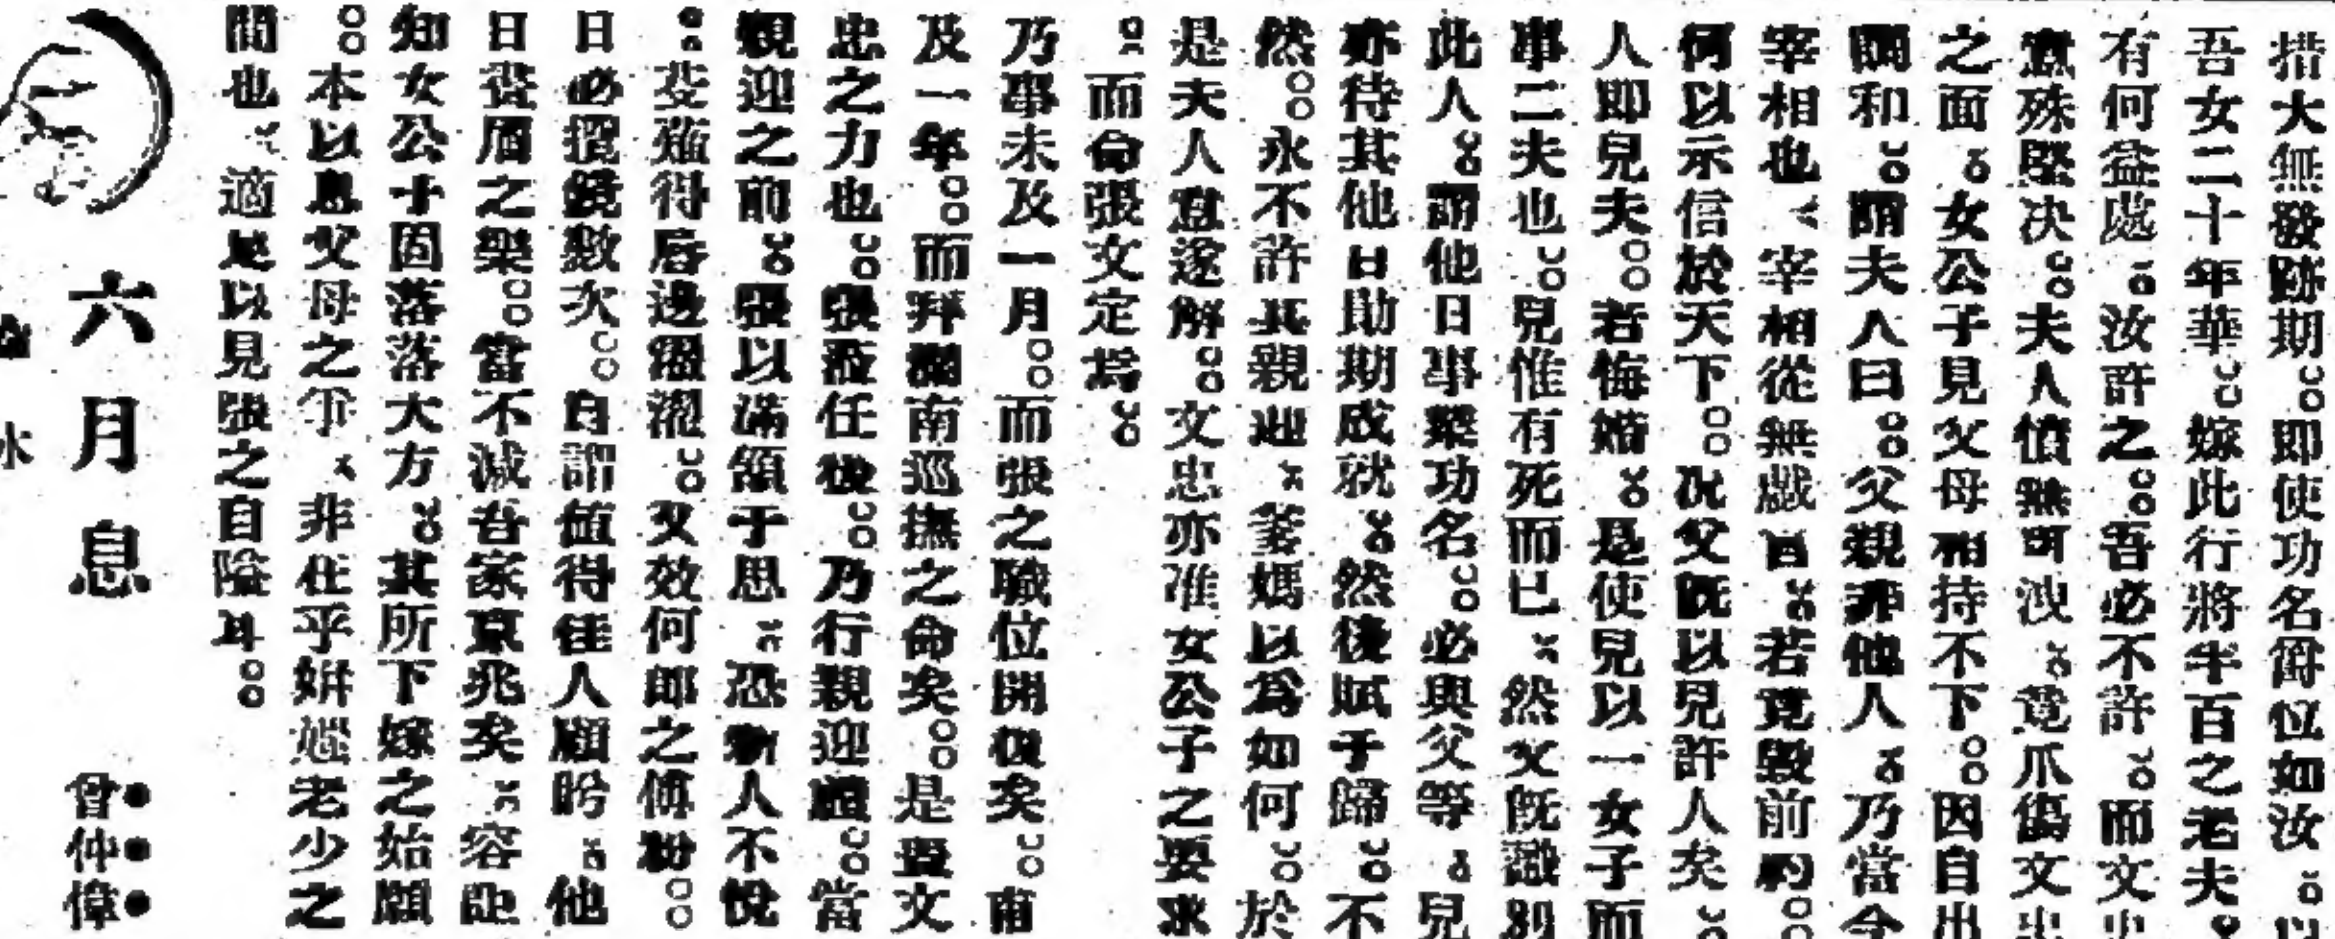 措大無發跡期。即使功名爵位如汝。以
吾女二十年華。嫁此行將半百之老夫。
有何益處。汝許之。吾必不許。而文忠
意殊堅決。夫人憤無可洩。竟爪傷文忠
之面。女公子見父母相持不下。因自出
調和。謂夫人曰。父親非他人。乃當今
宰相也、宰相從無戲言。若竟毀前約。
何以示信於天下。況父既以兒許人矣。
人即兒夫。若悔婚。是使兒以一女子而
事二夫也。兒惟有死而已、然父既識別
此人。謂他日事業功名。必與父等。兒
亦待其他日助期成就。然後賦于歸。不
然。永不許其親迎、爹媽以爲如何。於
是夫人意遂解。文忠亦准女公子之要求
。而命張文定焉。
乃事未及一月。而張之職位開復矣。甫
及一年。而拜閩南巡撫之命矣。是蓋文
忠之力也。張蒞任後。乃行親迎禮。當
親迎之前。張以滿頷于思、恐新人不悅
。芟薙得唇邊濯濯。又效何郎之傅粉。
日必攬鏡數次。自謂値得佳人顧盼。他
日畫眉之樂。當不減吾家京兆矣、容詎
知女公子固落落大方。其所下嫁之始願
。本以息父母之爭、非在乎姸媸老少之
間也、適足以見張之自隘耳。
六月息
曾仲偉